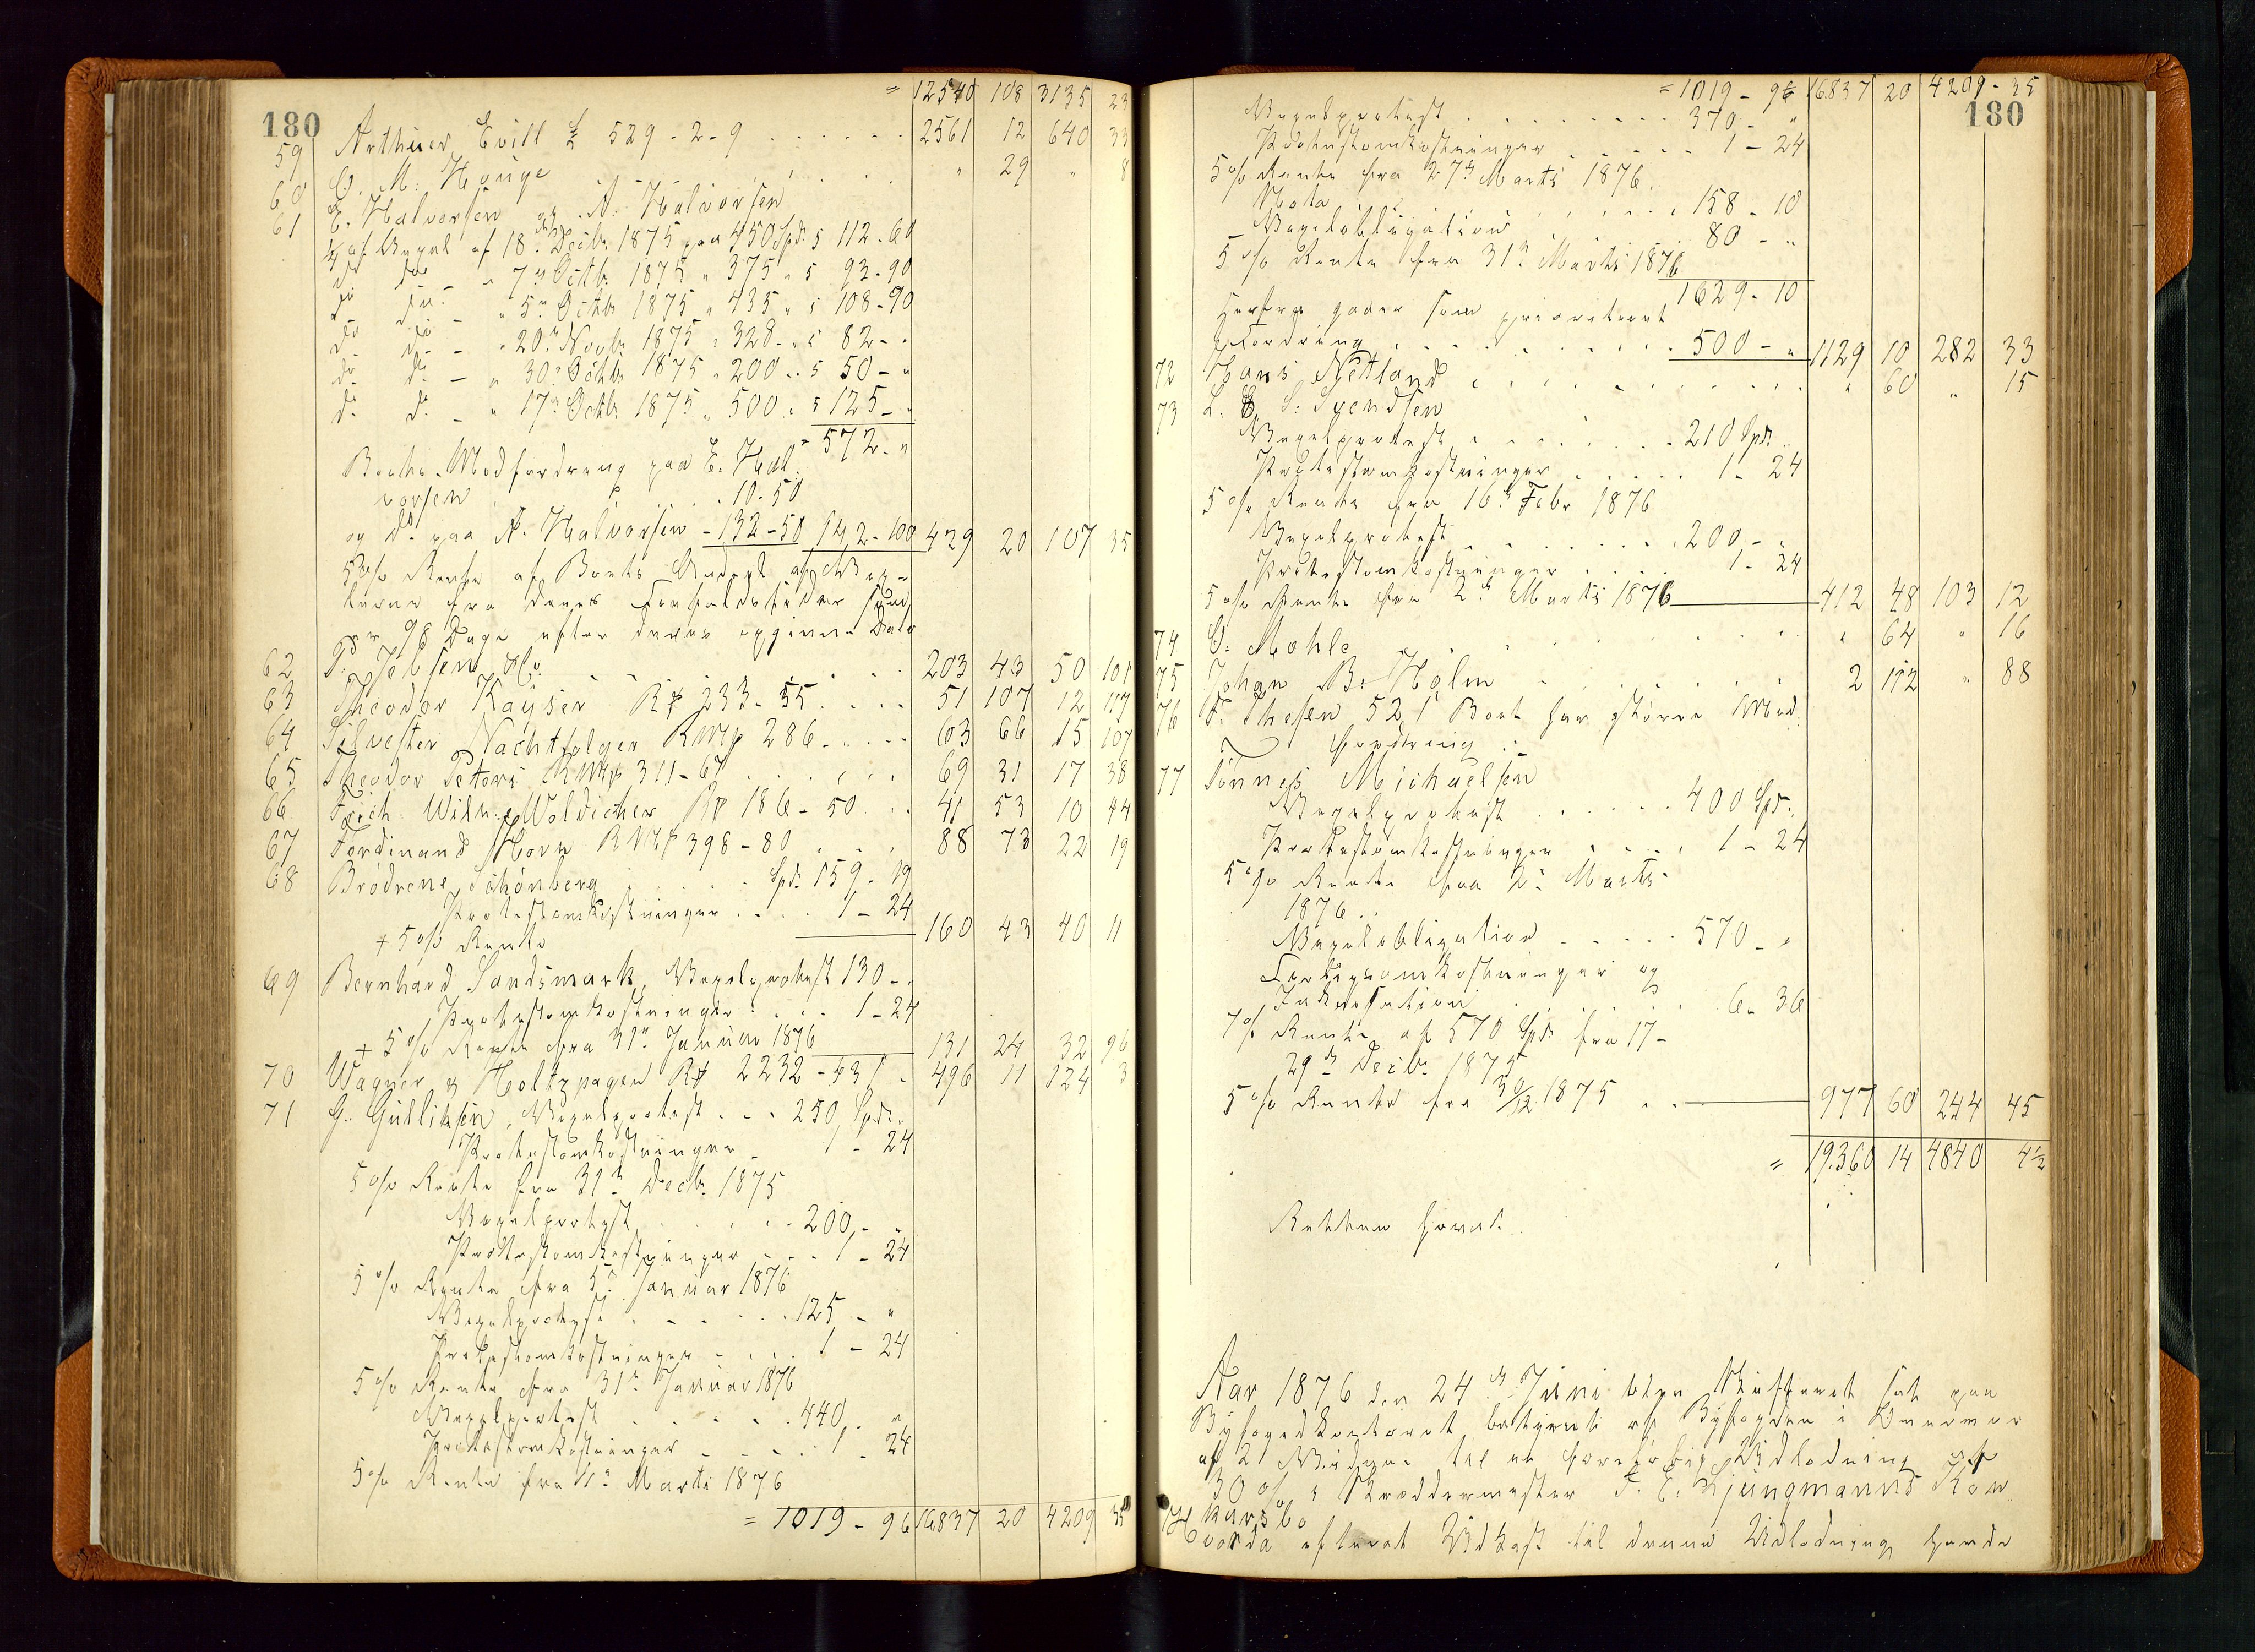 = 12540 108 3135 23
180
59 Arthur Evill £ 529-2-9 . . . . . 2561 12 640 33
60 O. M. Houge . . . . " 29 " 8
61 E. Halvorsen og A. Halvorsen
¼ af Vexel af 18de Decbr 1875 paa 450 Spd. s 112-60
do do - " 7de Octbr 1875 " 375 " s 93-90
do do - " 5te Octbr 1875 " 435 " s 108-90
do do - " 20de Novbr 1875 " 328 " s 82 - "
do do - " 30te Octbr 1875 " 200 " s 50 - "
do do - " 17de Octbr 1875 " 500 " s 125 - "
572 - "
Boets Modfordring paa E. Hal-
vorsen . . . 10-50
og do paa A. Halvorsen - 132-50 142-100 429 20 107 35
5% Rente af Boets Andel af Vex-
lerne fra deres Forfaldstider
98 Dage efter deres opgivne Dato
62 P. Jebsen & Co . . . . 203 43 50 101
63 Theodor Kayser R₰ 233-55 . . . . 51 107 12 117
64 Silvester Nachtfolger RM₰ 286 - " . . . 63 66 15 107
65 Theodor Peters RM₰ 311-67 . . . . . 69 31 17 38
66 Frich. Wilh. Woldicher R₰ 186-50 . . . 41 53 10 44
67 Ferdinand Horn RM₰ 398-80 . . . . 88 73 22 19
68 Brødrene Schønberg . . . . Spd. 159-19
Protestomkostninger . . . . 1-24
+ 5% Rente 160 43 40 11
69 Bernhard Sandsmark, Vexelprotest 130 - "
Protestomkostninger . . . 1-24
+ 5% Rente fra 31te Januar 1876 131 24 32 96
70 Wagner & Holtzpagen R₰ 2232 - . 496 11 124 3
71 G. Gulliksen, Vexelprotest . . . 250 Spd. "
Protestomkostninger - 1-24
5% Rente fra 31te Decbr 1875
Vexelprotest . . . . . 200 - "
Protestomkostninger . . . 1-24
5% Rente fra 5te Januar 1876
Vexelprotest . . . . . . 125 - "
Protestomkostninger . . . . 1-24
5% Rente fra 31te Januar 1876
Vexelprotest . . . . . . 440 - "
Protestomkostninger . . . . 1-24
5% Rente fra 4de Marts 1876
= 1019-96 16837 20 4209 35
= 1019-96 16.837 20 4209-35
180
Vexelprotest . . . . . . . . 370 - "
Protestomkostninger . . . . . 1-24
5% Rente fra 27de Marts 1876
Nota . . . . . . 158-10
Vexelobligation . . . . . . 80 - "
5% Rente fra 31te Marts 1876
1629-10
Herfra gaaer som prioriteret
Fordring . . . . . . . . . 500 - " 1129 10 282 33
72 Hans Nætland . . . . . . . . . " 60 " 15
73 L. S. Svendsen
Vexelprotest . . . . . . . 210 Spd. "
Protestomkostninger . . . . . 1-24
5% Rente fra 16de Febr 1876
Vexelprotest . . . . . . . 200 - "
Protestomkostninger . . . . . 1-24
5% Rente fra 2den Marts 1876 412 48 103 12
74 O. Mohle . . . . . . " 64 " 16
75 Johan B. Holm . . . . . . 2 112 " 88
76 F. Thesen 521 Boet har større Mod-
fordring :-
77 Tønnes Michaelsen
Vexelprotest . . . . . 400 Spd. "
Protestomkostninger . . . . . 1-24
5% Rente fra 2den Marts
1876 . .
Vexelobligation . . . . . 570 - "
Forligsomkostninger og
Incassation . . . . . . 6-36
7% Rente af 570 Spd. fra 17 -
29de Decbr 1875
5% Rente fra 30/12 1875 . . 977 60 244 45
= 19.360 14 4840 4½
Retten hævet.
Aar 1876 den 24de Juni blev Skifteret sat paa
Byfogedkontoret bestyret af Byfogden i Nærvær
af 2 Vidner til en foreløbig Udlodning af
30% i Skræddermester F. E. Ljungmanns Kon-
kursbo
Hvorda efteret Udkast til denne Udlodning havde